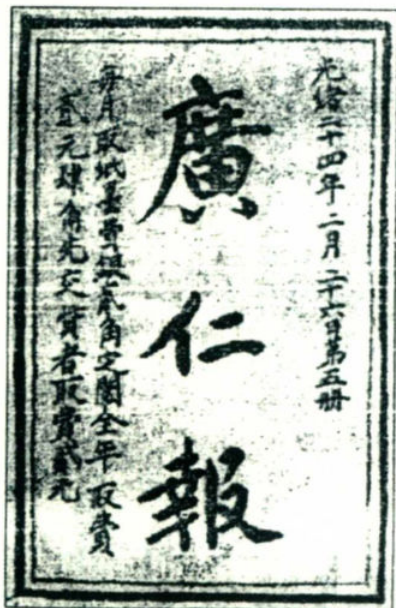 光緒二十四年二月二十六日第五册
廣仁報
每月取紙墨費銀貳角定閱全年取費
貳元肆角先交貲者取費貳元